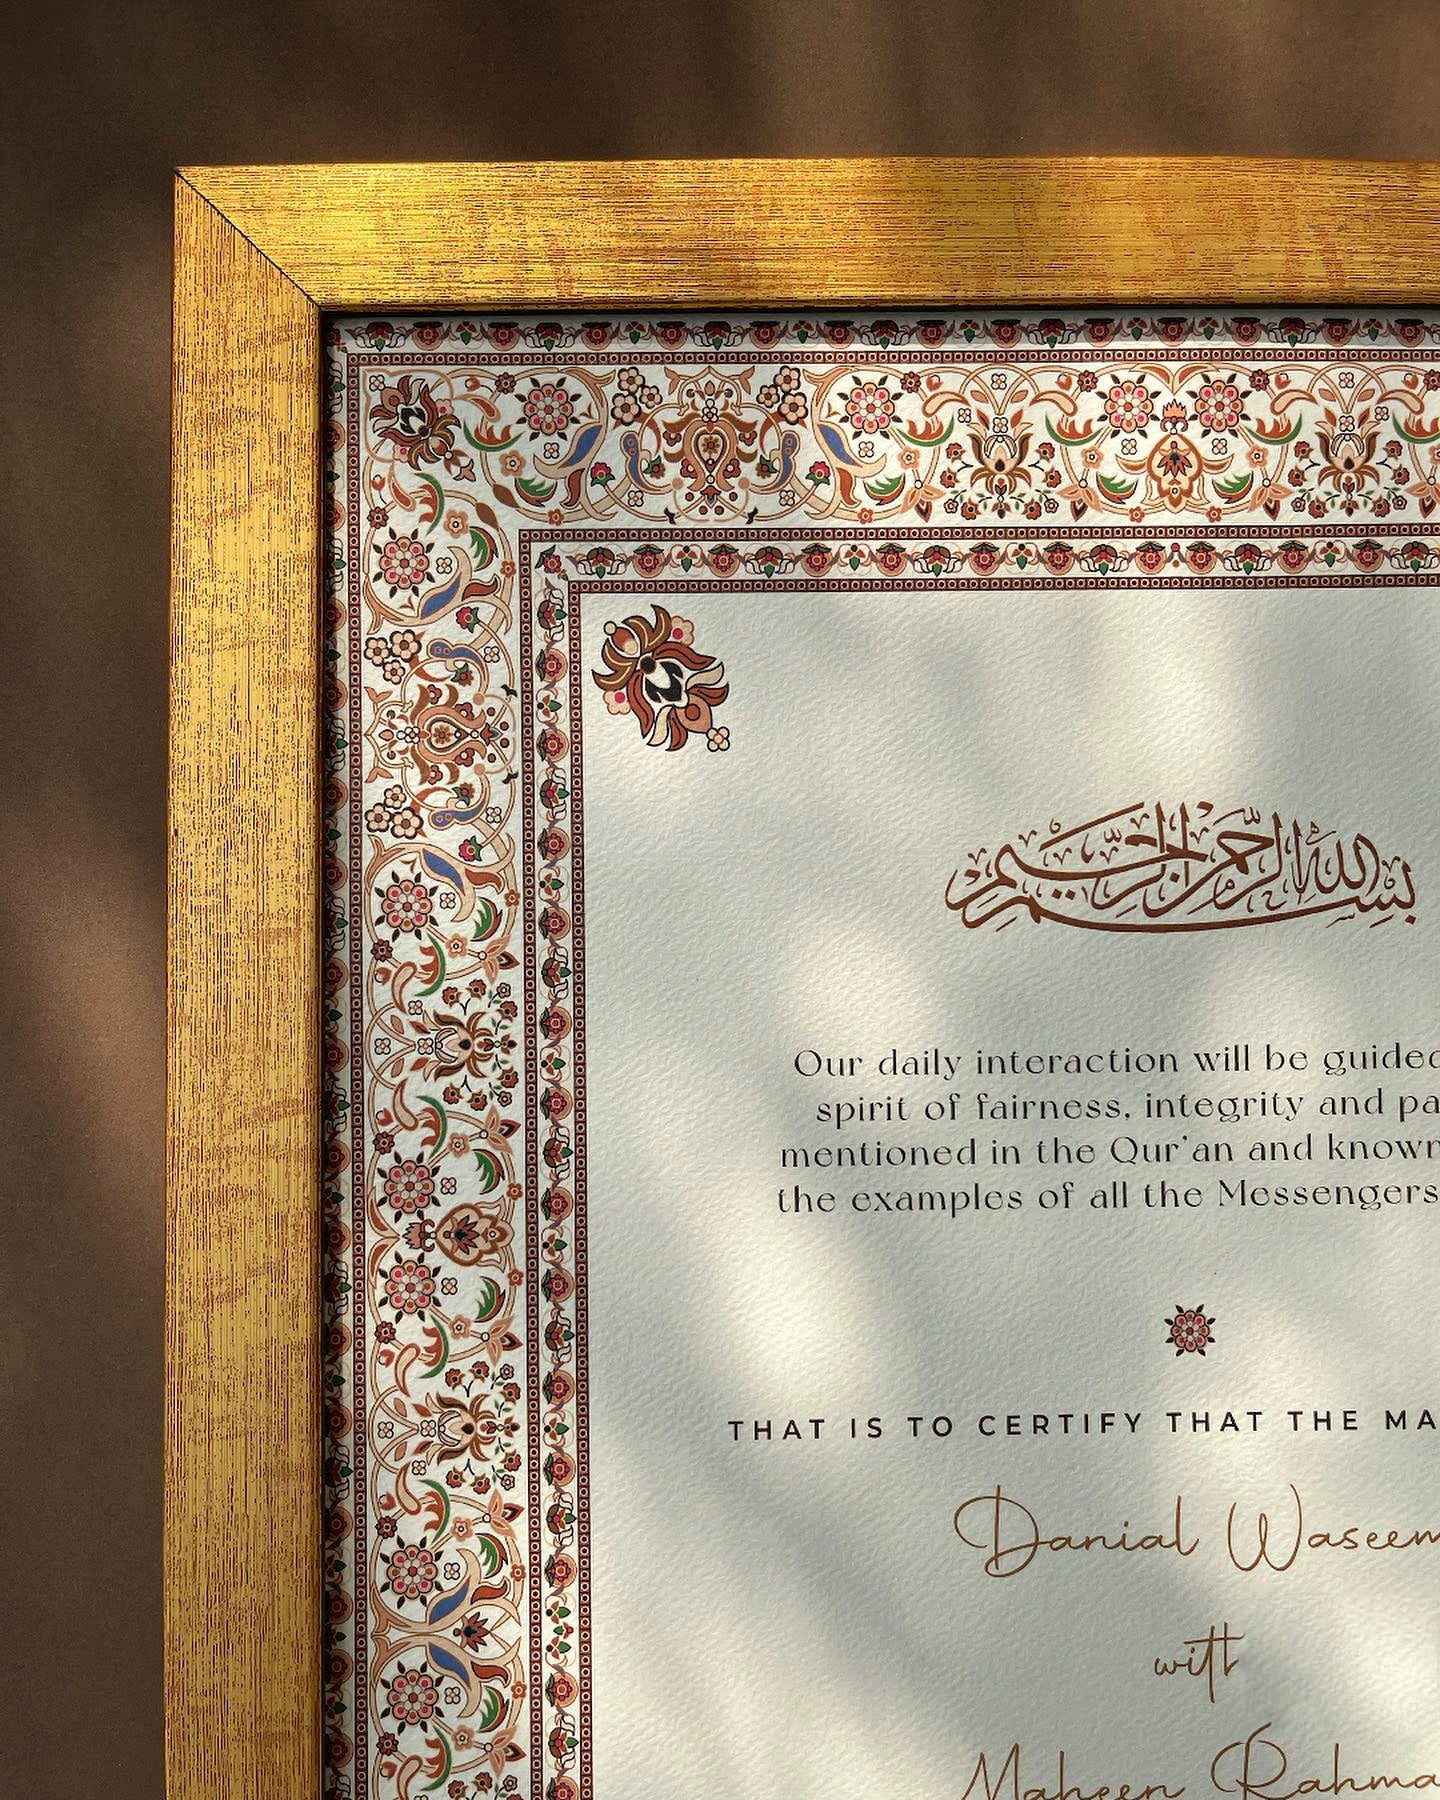 بسم الله الرحمن الرحيم
Our daily interaction will be guided
spirit of fairness, integrity and pa
mentioned in the Qur'an and known
the examples of all the Messengers
THAT IS TO CERTIFY THAT THE MA
Danial Waseem
with
Maheen Rahma